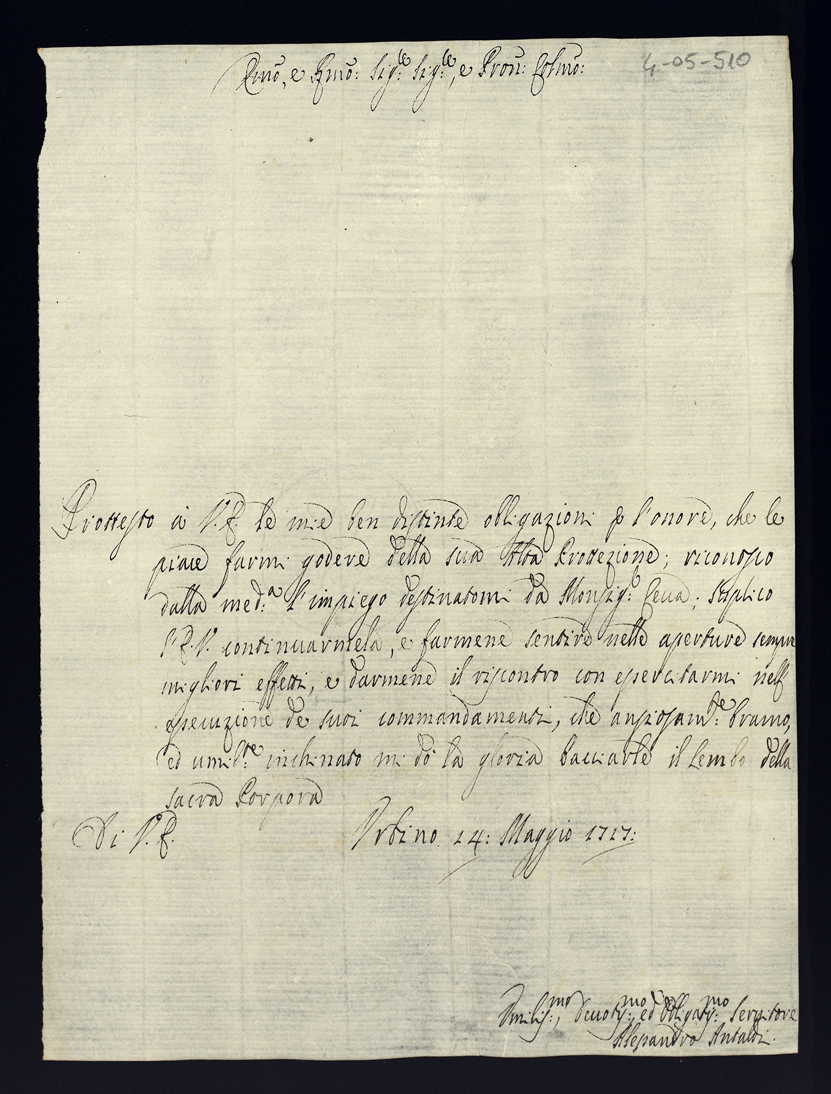 Emõ, e Rmõ: Sig.re Sig.re, e Pron: Colmõ:
4-05-510
Prottesto à V. E. le mie ben distinte obligazioni p l'onore, che le
piace farmi godere della sua Alta Prottezione; riconosco
dalla med.a l'impiego destinatomi da Monsig.r Cecca; Suplico
l'E. V. continuarmela, e farmene sentire nelle aperture sempre
migliori effetti, e darmene il riscontro con esercitarmi nell'
esecuzione de suoi commandamenti, che ansiosam.te bramo,
ed umil.te inchinato mi dò la gloria bacciarle il Lembo della
sacra Porpora
Di V. E. Urbino 14: Maggio 1717:
Umilis.mo, Devotis.mo ed Obligatis.mo Servitore
Alesandro Antaldi